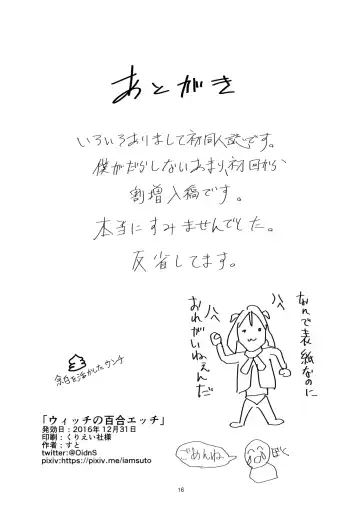 あとがき
いろいろありまして初同人誌です。
僕がだらしないあまり、初回から
割増入稿です。
本当にすみませんでした。
反省してます。
なんで表紙なのに
おれがいねぇんだ
余白を活かしたウンチ
「ウィッチの百合エッチ」
発効日：2016年12月31日
印刷：くりえい社様
作者：すと
twitter:@OidnS
pixiv:https://pixiv.me/iamsuto
ごめんね
ぼく
16